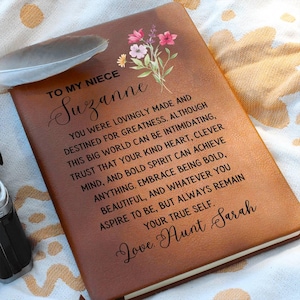 TO MY NIECE
Suzanne
YOU WERE LOVINGLY MADE AND
DESTINED FOR GREATNESS. ALTHOUGH
THIS BIG WORLD CAN BE INTIMIDATING,
TRUST THAT YOUR KIND HEART, CLEVER
MIND, AND BOLD SPIRIT CAN ACHIEVE
ANYTHING. EMBRACE BEING BOLD,
BEAUTIFUL, AND WHATEVER YOU
ASPIRE TO BE, BUT ALWAYS REMAIN
YOUR TRUE SELF.
Love Aunt Sarah